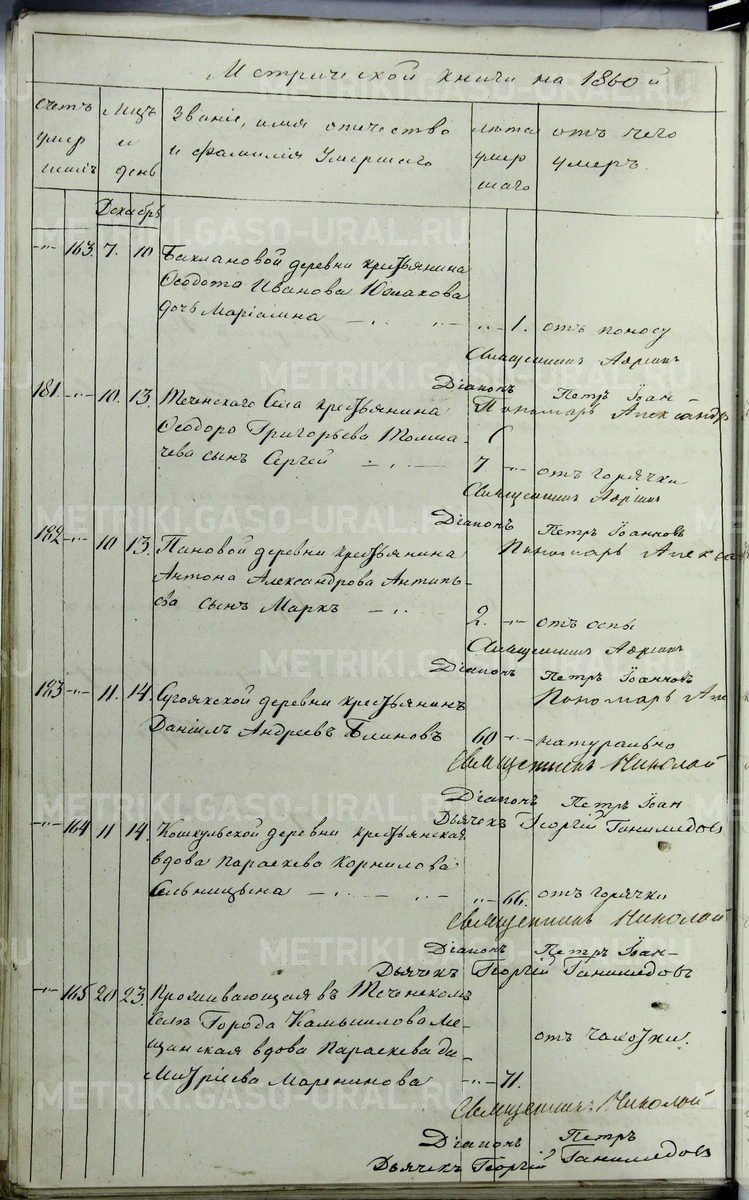 Метрической книги на 1860й
счетъ умер шихъ
Мцъ и день
Званіе, имя отчество и фамилія Умершаго
лѣта умер шаго
отъ чего умеръ.
Декабрь
163. 7. 10 Баклановой деревни крестьянина
Ѳеодота Иванова Южакова
дочь Маріамна 1. отъ поносу
Священникъ Адріанъ
Діаконъ Петръ Іоан-
181 10. 13. Теченскаго Села крестьянина Пономарь Александр
Ѳеодора Григорьева Толма-
чева сынъ Сергей 7 отъ горячки
Священникъ Адріан
Діаконъ Петръ Іоанновъ
182 10 13. Пановой деревни крестьянина Пономарь Алекса
Антона Александрова Антипь-
ева сынъ Маркъ 2. отъ оспы
Священникъ Адріан
Діаконъ Петръ Іоанновъ
183 11. 14. Сугоякской деревни крестьянинъ Пономарь Але
Даніилъ Андреевъ Блиновъ 60 натурально
Священникъ Николай
Діаконъ Петръ Іоан
Дьячекъ Георгій Ганимедовъ
164 11 14. Кошкульской деревни крестьянская
вдова Параскева Корнилова
Сельницына 66. отъ горячки
Священникъ Николай
Діаконъ Петръ Іоан-
Дьячекъ Георгій Ганимедовъ
165 20 23. Проживающая въ Теченскомъ
Селѣ Города Камышлова Ме- отъ чахотки.
щанская вдова Параскева Ди-
митріева Маренинова 71.
Священникъ Николай
Діаконъ Петръ
Дьячекъ Георгій Ганимедовъ
METRIKI.GASO-URAL.RU